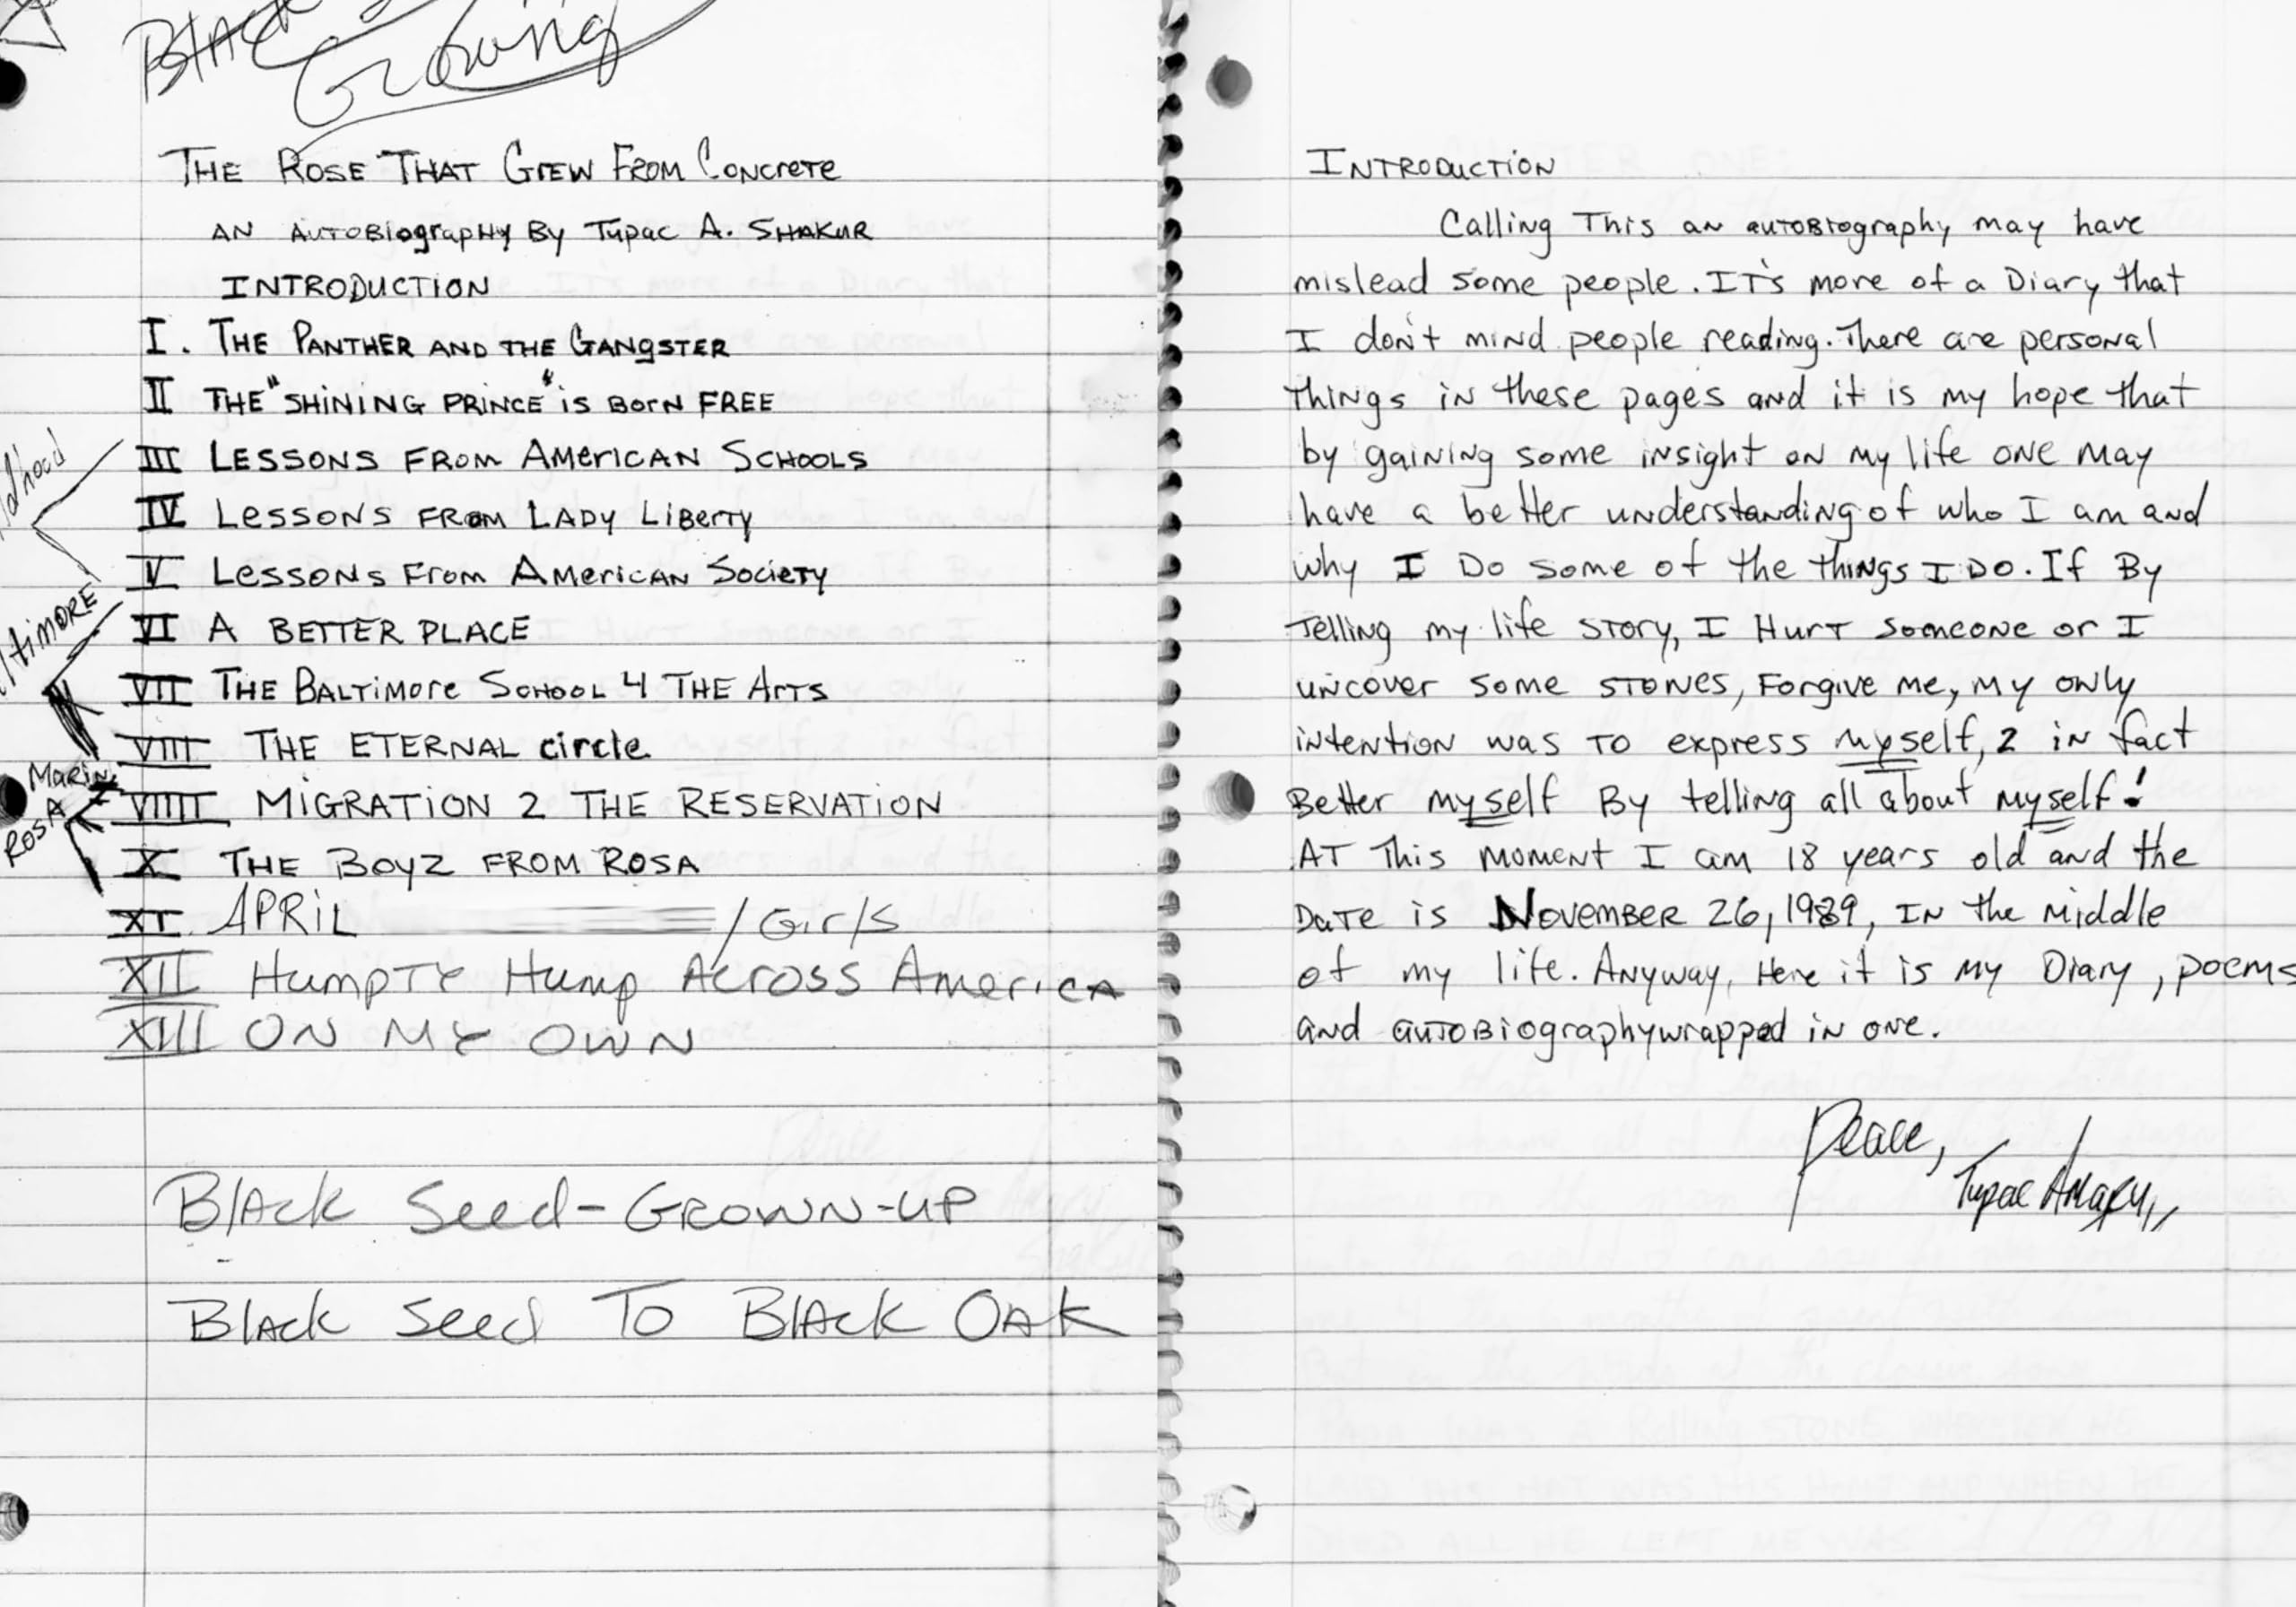 BLACK
Growing
THE ROSE THAT GREW FROM CONCRETE
AN AUTOBIOGRAPHY BY TUPAC A. SHAKUR
INTRODUCTION
I. THE PANTHER AND THE GANGSTER
II THE "SHINING PRINCE" is BORN FREE
III LESSONS FROM AMERICAN SCHOOLS
IV LESSONS FROM LADY LIBERTY
V LESSONS FROM AMERICAN SOCIETY
VI A BETTER PLACE
VII THE BALTIMORE SCHOOL 4 THE ARTS
VIII THE ETERNAL circle
Marin
VIIII MIGRATION 2 THE RESERVATION
ROSA
X THE BOYZ FROM ROSA
XI APRIL / Girls
XII HUMPTY HUMP ACROSS AMERICA
XIII ON MY OWN
BLACK Seed-GROWN-UP
BLACK Seed To BLACK OAK
INTRODUCTION
Calling This an autobiography may have
mislead some people. IT's more of a Diary that
I don't mind people reading. There are personal
things in these pages and it is my hope that
by gaining some insight on my life one may
have a better understanding of who I am and
why I Do some of the things I Do. If By
Telling my life story, I Hurt someone or I
uncover some stones, Forgive me, my only
intention was to express myself, 2 in fact
Better myself By telling all about myself!
AT This moment I am 18 years old and the
Date is November 26, 1989, IN the middle
of my life. Anyway, Here it is my Diary, poems
and autobiography wrapped in one.
Peace,
Tupac Amaru